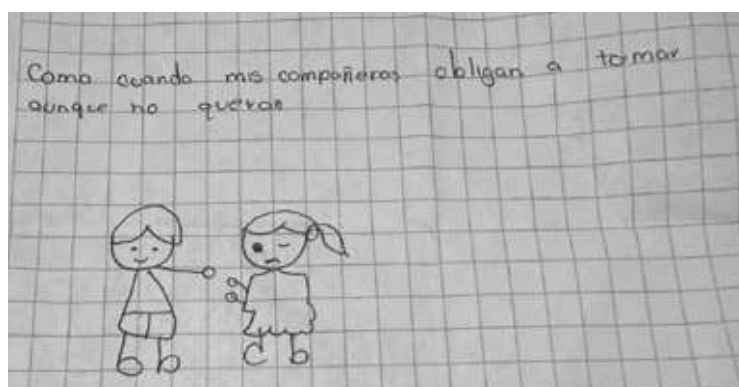 Como cuando mis compañeros obligan a tomar
aunque no queran